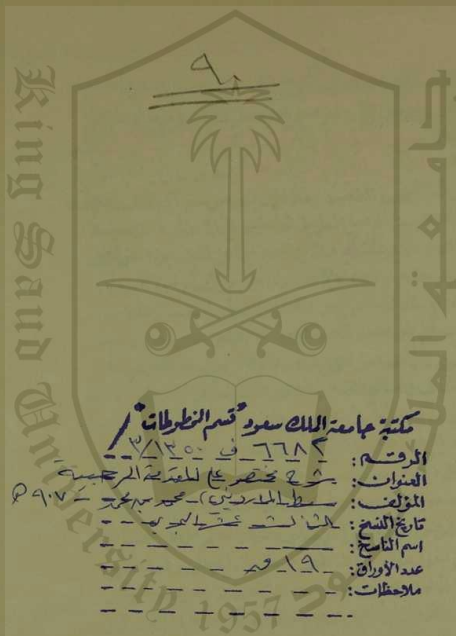 ٩
King Saud University
1957
جامعة الملك
مكتبة جامعة الملك سعود "قسم المخطوطات"
الرقم: ٦٦٨٢ ف ١٣٥٠/٣
العنوان: شرح مختصر على المقدمة الرحبية
المؤلف: سبط المارديني، محمد بن محمد - ٩٠٧ ه
تاريخ النسخ: الثالث عشر الهجري
اسم الناسخ:
عدد الأوراق: ١٩
ملاحظات: